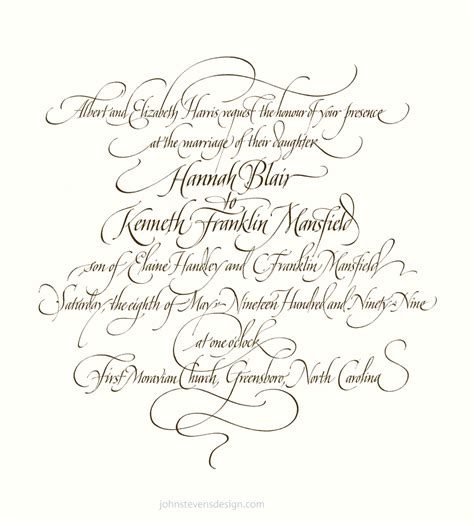 Albert and Elizabeth Harris request the honour of your presence
at the marriage of their daughter
Hannah Blair
to
Kenneth Franklin Mansfield
son of Elaine Handley and C Franklin Mansfield
Saturday, the eighth of May Nineteen Hundred and Ninety Nine
at one o'clock
First Moravian Church, Greensboro, North Carolina
johnstevensdesign.com